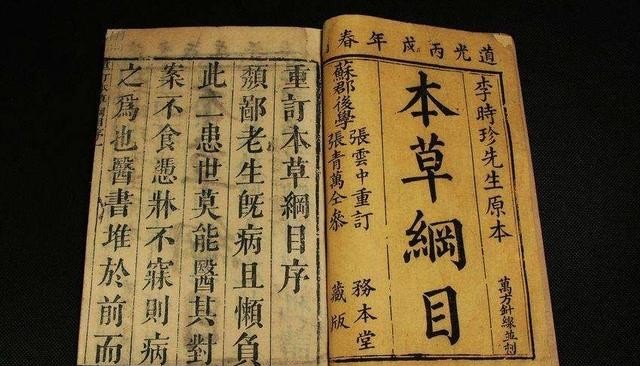 道光丙戌年春
李時珍先生原本
萬方針線並刻
本草綱目
張雲中重訂
務本堂
蘇郡後學
張青萬仝參
藏版
重訂本草綱目序
頹鄙老生旣病且懶負
此二患世莫能醫其對
案不食憑牀不寐則病
之爲也醫書堆於前而